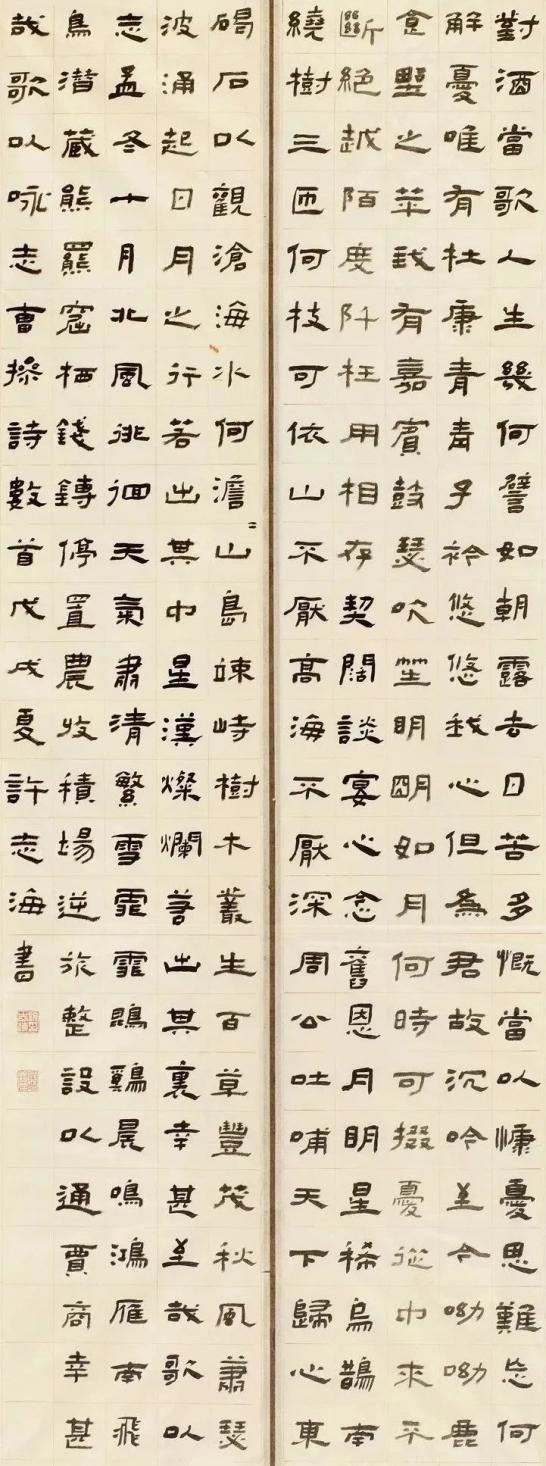 對酒當歌人生幾何譬如朝露去日苦多慨當以慷憂思難忘何
解憂唯有杜康青青子衿悠悠我心但為君故沉吟至今呦呦鹿
食野之苹我有嘉賓鼓瑟吹笙明明如月何時可掇憂從中來不
斷絕越陌度阡枉用相存契闊談宴心念舊恩月明星稀烏鵲南
繞樹三匝何枝可依山不厭高海不厭深周公吐哺天下歸心東
碣石以觀滄海水何澹=山島竦峙樹木叢生百草豐茂秋風蕭瑟
波涌起日月之行若出其中星漢燦爛若出其裏幸甚至哉歌以
志孟冬十月北風徘徊天氣肅清繁雪霏霏鵾鷄晨鳴鴻雁南飛
鳥潛藏熊羆窟栖錢鎛停置農收積場逆旅整設以通賈商幸甚
哉歌以咏志曹操詩數首戊戌夏許志海書